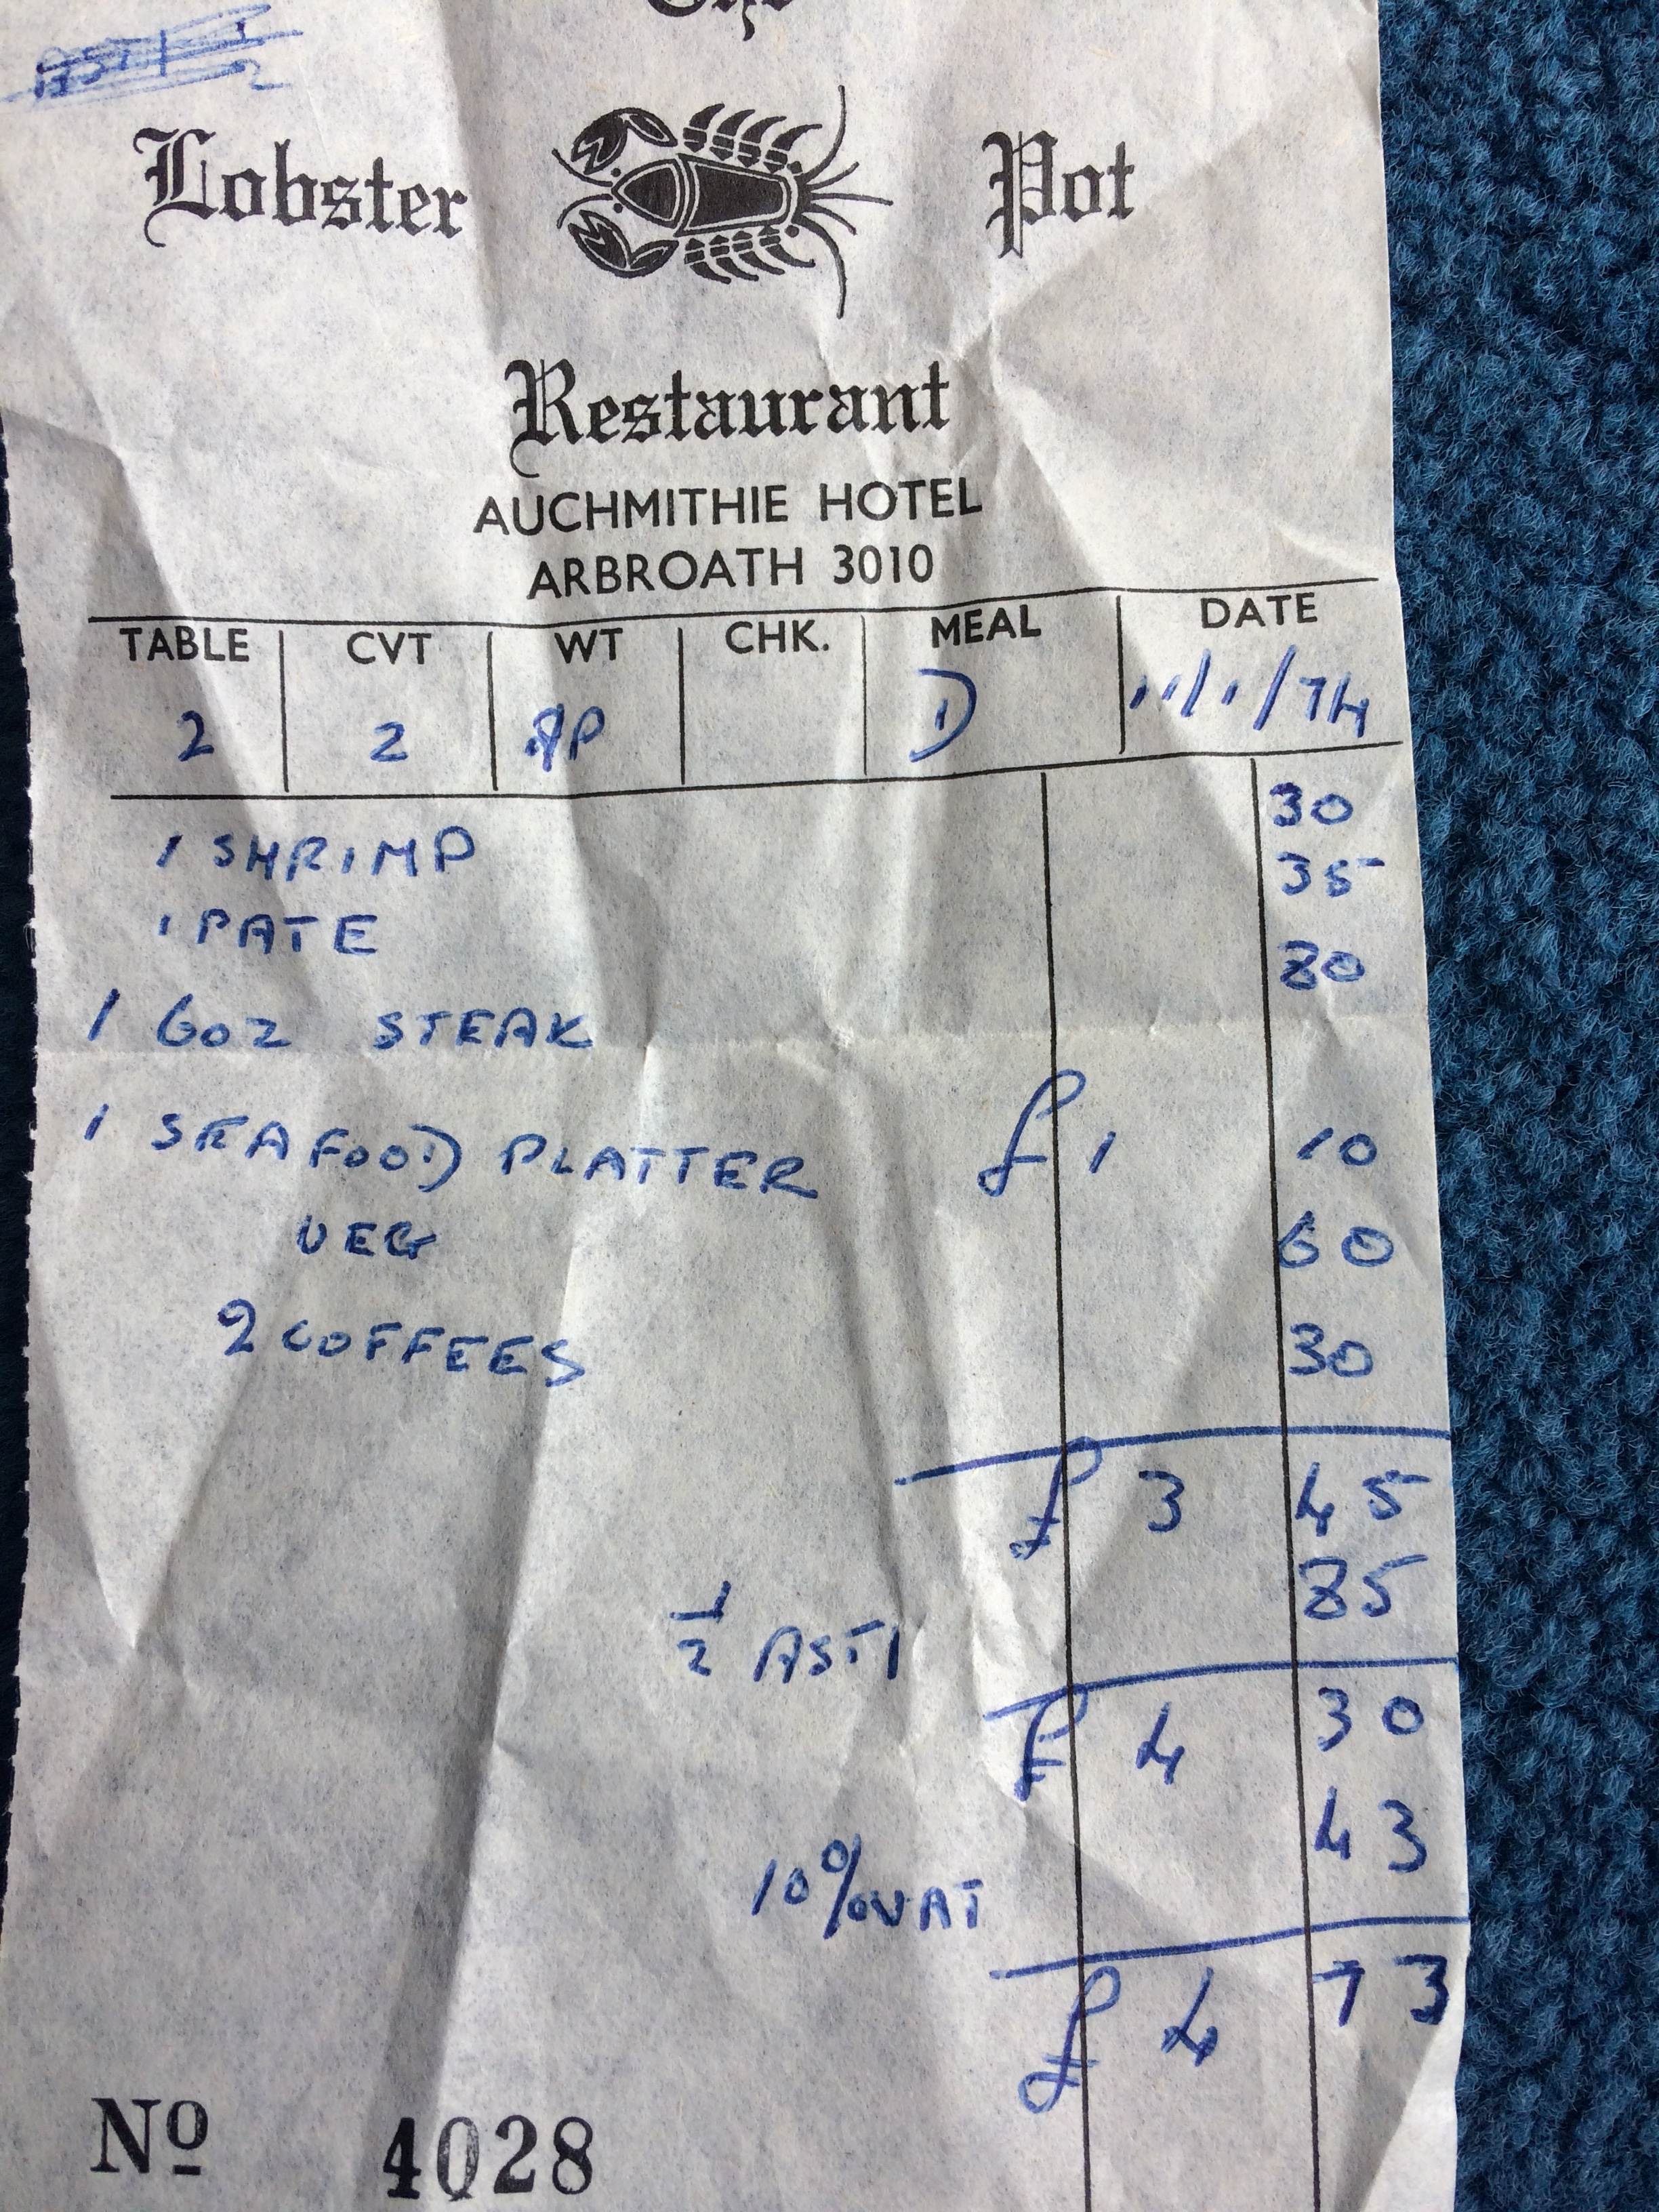 The
Lobster Pot
Restaurant
AUCHMITHIE HOTEL
ARBROATH 3010
TABLE CVT WT CHK. MEAL DATE
2 2 AP D 11/1/74
1 SHRIMP 30
1 PATE 35
1 6oz STEAK 80
1 SEAFOOD PLATTER £1 10
VEG 60
2 COFFEES 30
£3 45
1/2 ASTI 85
£4 30
10% VAT 43
£4 73
Nº 4028